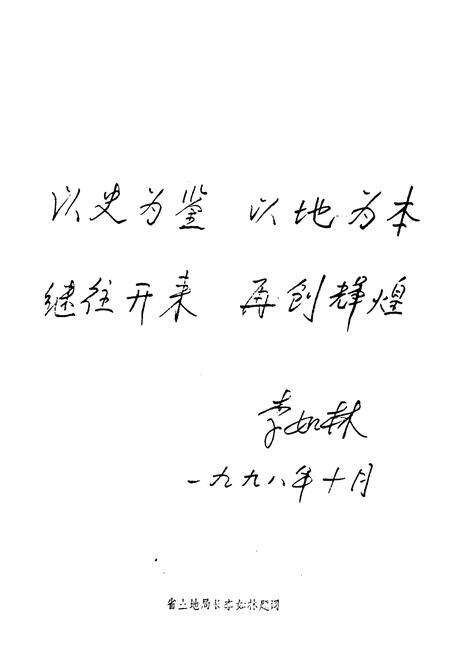 以史为鉴 以地为本
继往开来 再创辉煌
李如林
一九九八年十月
省土地局长李如林题词